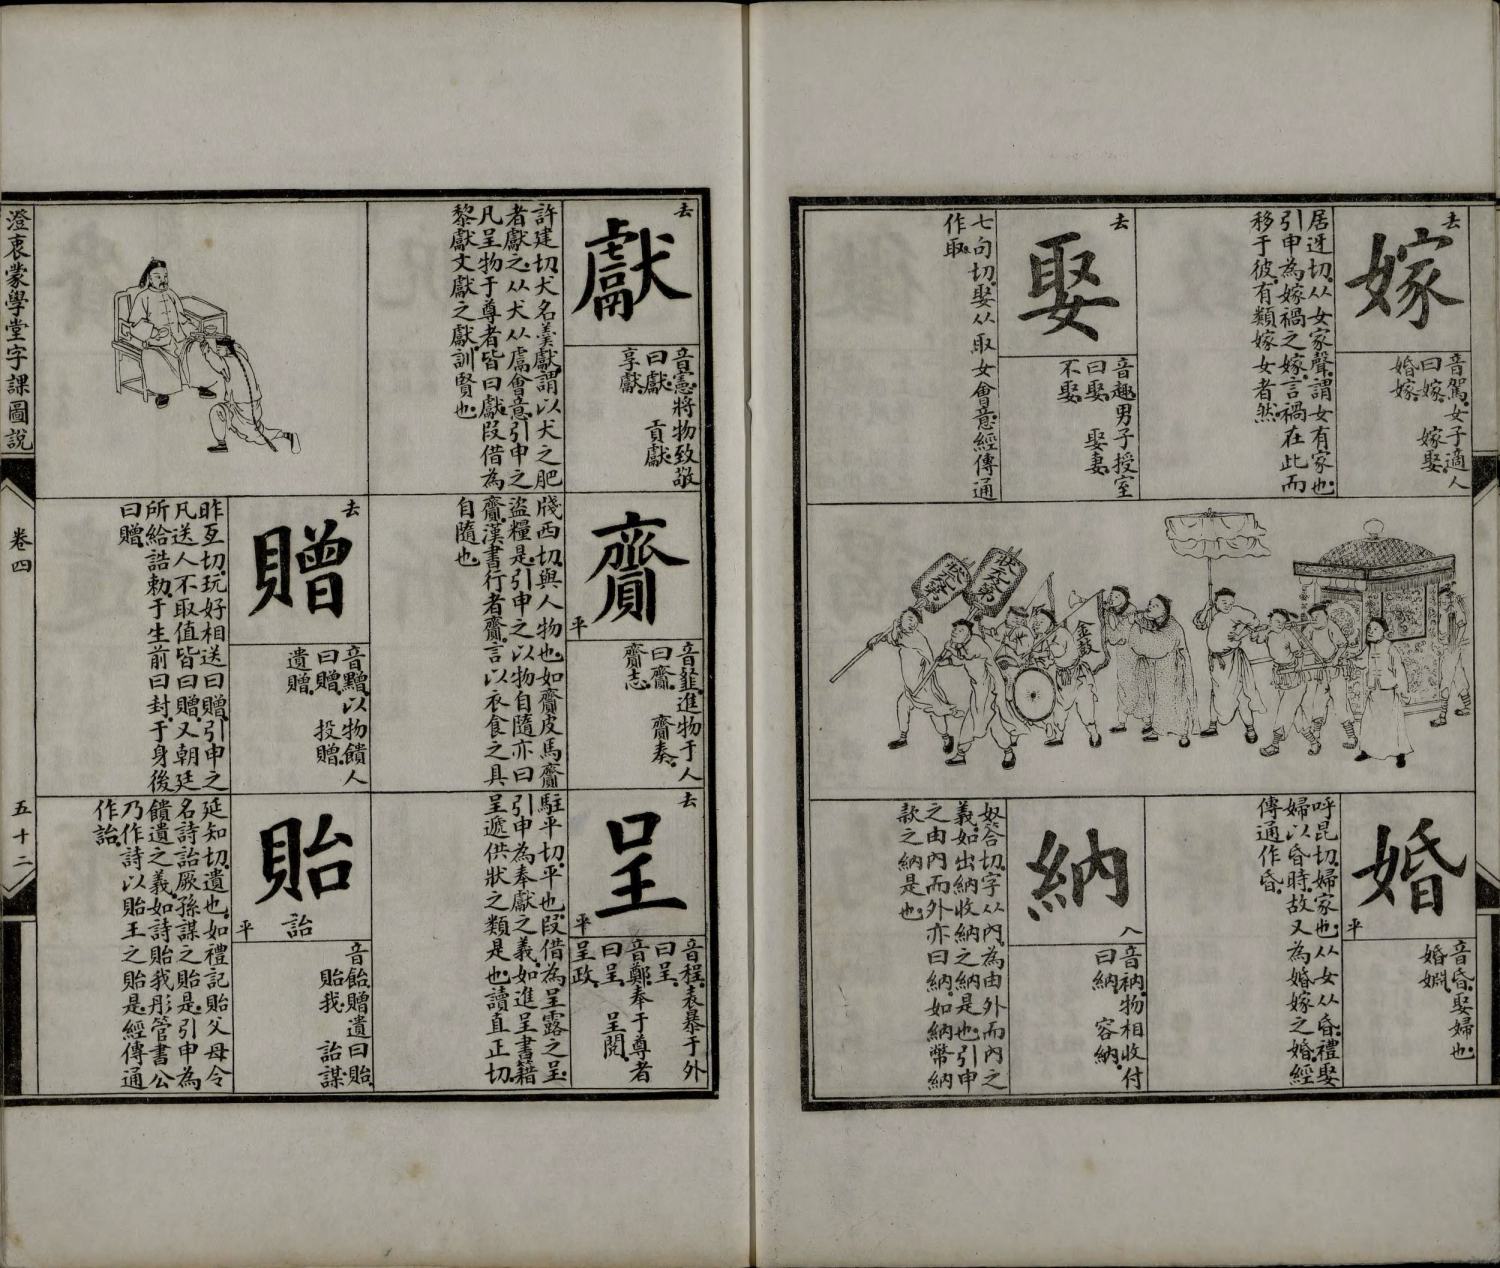 去
嫁
音駕女子適人
曰嫁 嫁娶
婚嫁
居迓切从女家聲謂女有家也
引申為嫁禍之嫁言禍在此而
移于彼有類嫁女者然
去
娶
音趣男子授室
曰娶 娶妻
不娶
七句切娶从取女會意經傳通
作取
狀元第
狀元第
金鼓
婚
平
音昏娶婦也
婚姻
呼昆切婦家也从女从昏禮娶
婦以昏時故又為婚嫁之婚經
傳通作昏
納
入
音衲物相收付
曰納 容納
奴答切字从內為由外而內之
義如出納收納之納是也引申
之由內而外亦曰納如納幣納
款之納是也
去
獻
音憲將物致敬
曰獻 貢獻
享獻
許建切犬名羹獻謂以犬之肥
者獻之从犬从鬳會意引申之
凡呈物于尊者皆曰獻叚借為
黎獻文獻之獻訓賢也
齎
平
音躋進物于人
曰齎 齎奏
齎志
牋西切與人物也如齎皮馬齎
盜糧是引申之以物自隨亦曰
齎漢書行者齎言以衣食之具
自隨也
去
呈
平
音程表暴于外
曰呈
音鄭奉于尊者
曰呈 呈閱
呈政
駐平切平也叚借為呈露之呈
引申為奉獻之義如進呈書籍
呈遞供狀之類是也讀直正切
去
贈
音䰝以物饋人
曰贈 投贈
遺贈
昨亙切玩好相送曰贈引申之
凡送人不取值皆曰贈又朝廷
所給誥勅于生前曰封于身後
曰贈
貽
詒
平
音飴贈遺曰貽
貽我 詒謀
延知切遺也如禮記貽父母令
名詩詒厥孫謀之貽是引申為
饋遺之義如詩貽我彤管書公
乃作詩以貽王之貽是經傳通
作詒
澄衷蒙學堂字課圖說
卷四
五十二